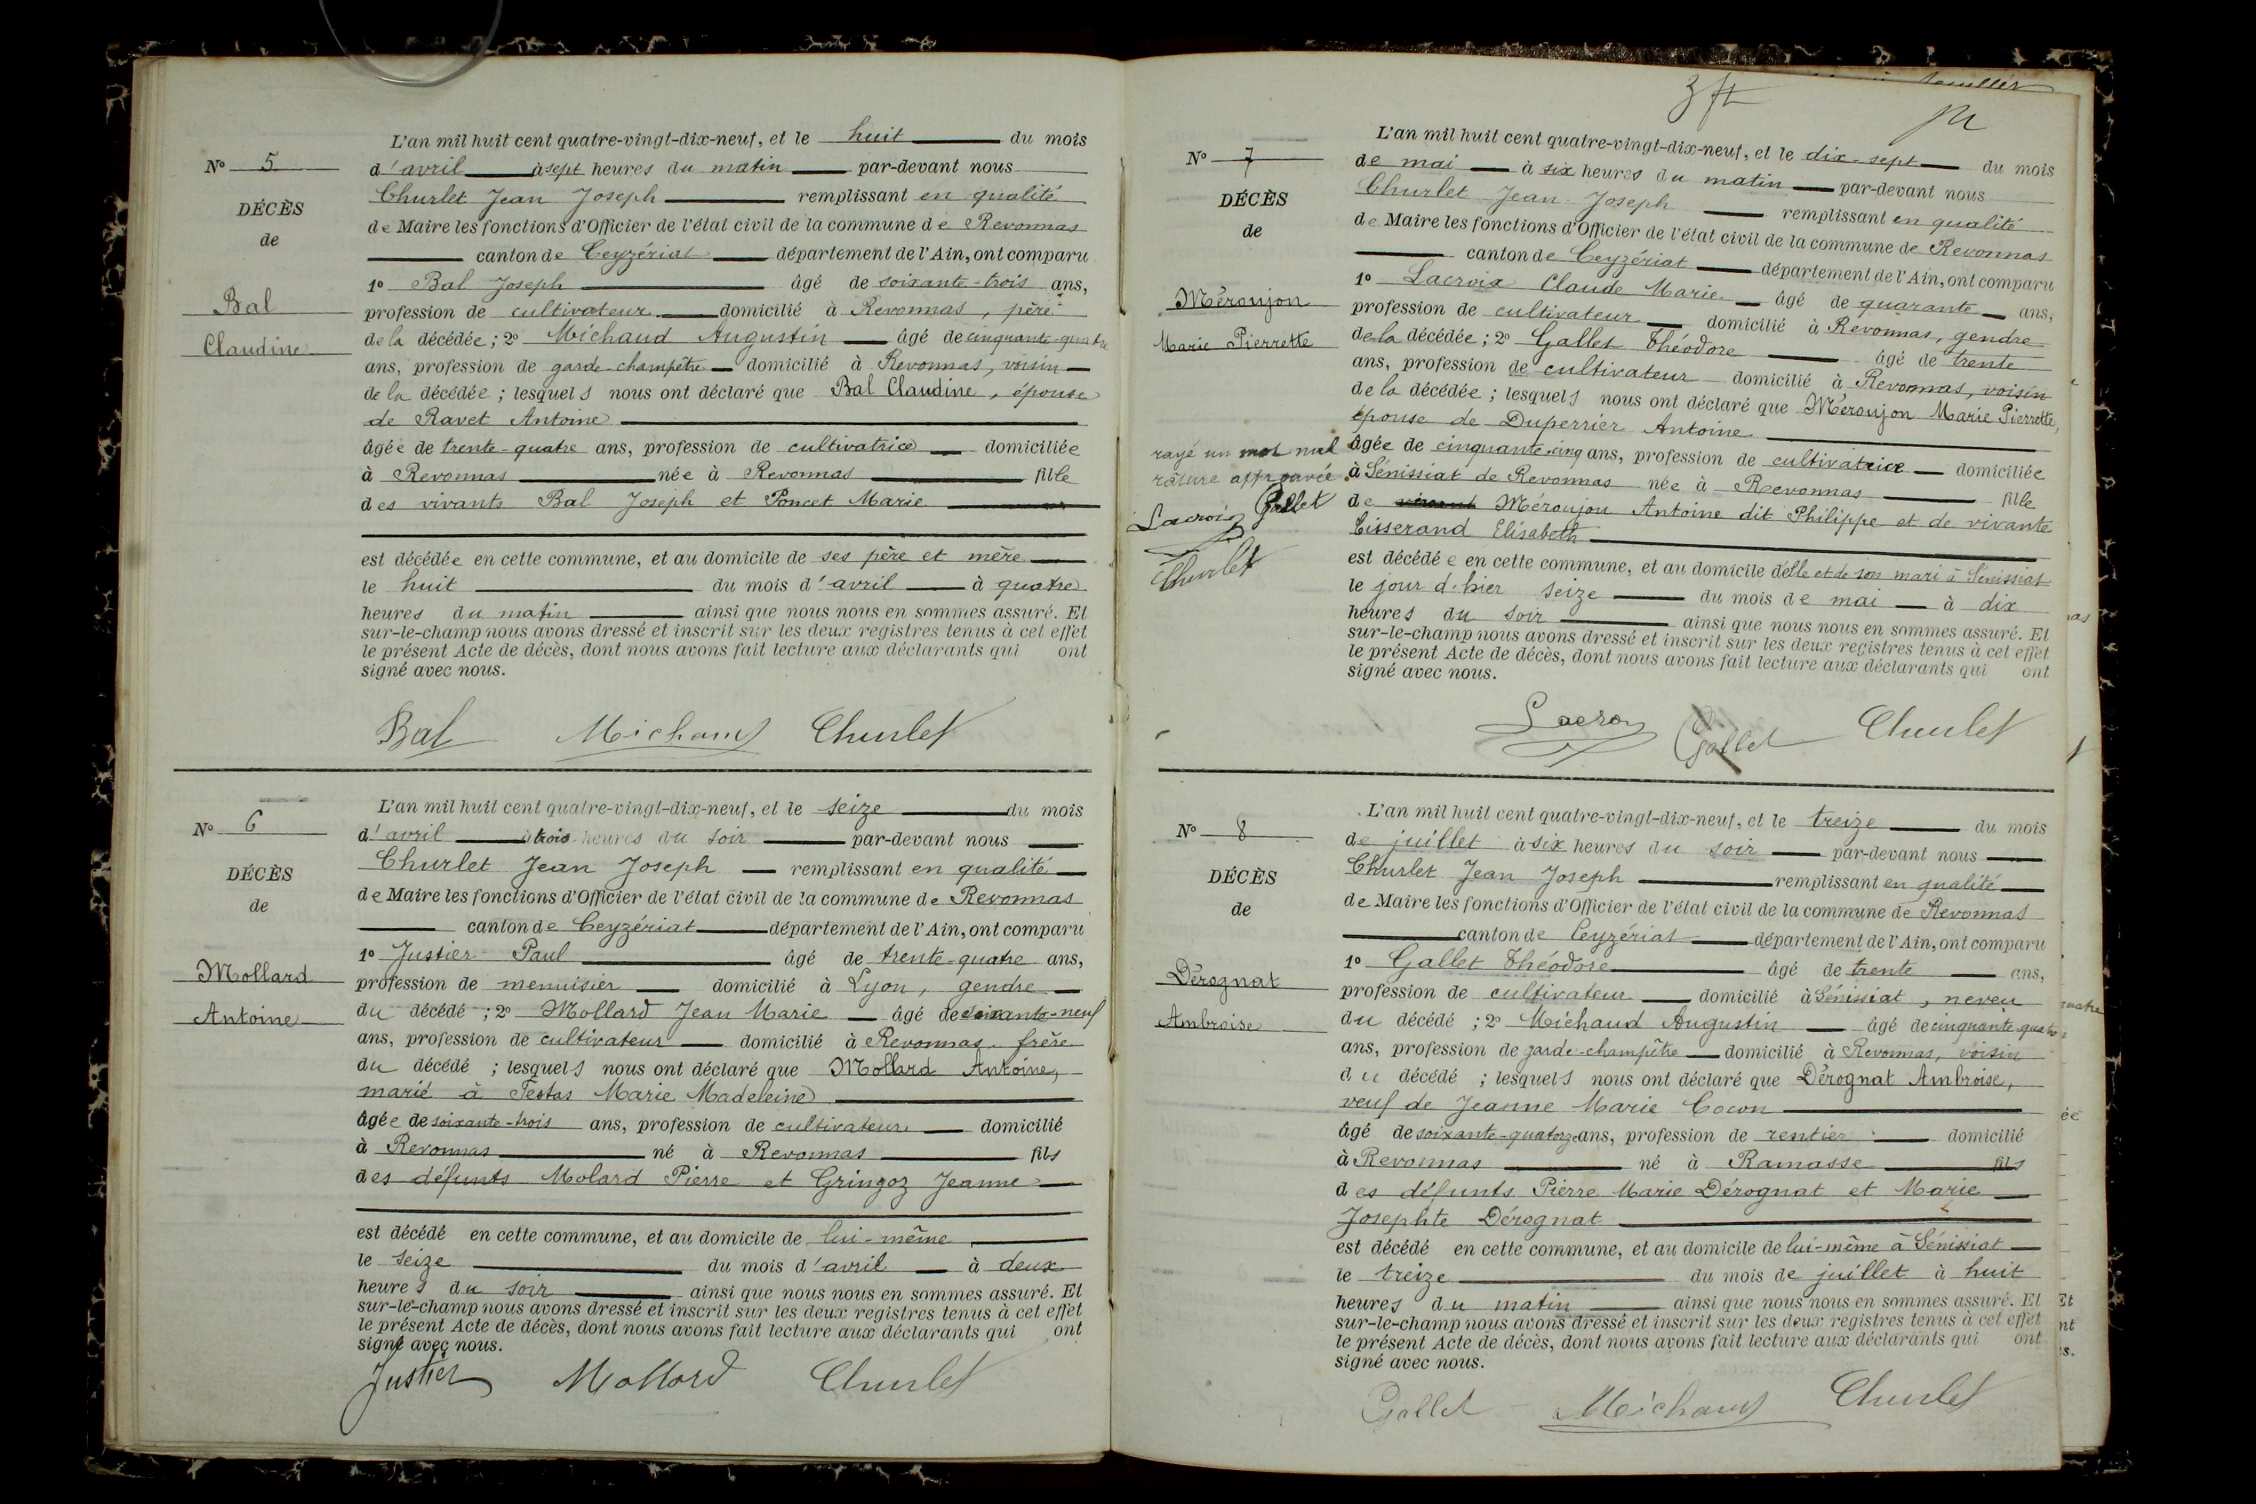 L'an mil huit cent quatre-vingt-dix-neuf, et le huit du mois
N° 5
d'avril à sept heures du matin par-devant nous
Churlet Jean Joseph remplissant en qualité
DÉCÈS
de Maire les fonctions d'Officier de l'état civil de la commune de Revonnas
de
canton de Ceyzériat département de l'Ain, ont comparu
1° Bal Joseph âgé de soixante-trois ans,
Bal
profession de cultivateur domicilié à Revonnas, père
Claudine
de la décédée ; 2° Michaud Augustin âgé de cinquante-quatre
ans, profession de garde-champêtre domicilié à Revonnas, voisin
de la décédée ; lesquels nous ont déclaré que Bal Claudine, épouse
de Ravet Antoine
âgée de trente-quatre ans, profession de cultivatrice domiciliée
à Revonnas née à Revonnas fille
des vivants Bal Joseph et Poncet Marie
est décédée en cette commune, et au domicile de ses père et mère
le huit du mois d'avril à quatre
heures du matin ainsi que nous nous en sommes assuré. Et
sur-le-champ nous avons dressé et inscrit sur les deux registres tenus à cet effet
le présent Acte de décès, dont nous avons fait lecture aux déclarants qui ont
signé avec nous.
Bal Michaud Churlet
L'an mil huit cent quatre-vingt-dix-neuf, et le seize du mois
N° 6
d'avril à trois heures du soir par-devant nous
Churlet Jean Joseph remplissant en qualité
DÉCÈS
de Maire les fonctions d'Officier de l'état civil de la commune de Revonnas
de
canton de Ceyzériat département de l'Ain, ont comparu
1° Justier Paul âgé de trente-quatre ans,
Mollard
profession de menuisier domicilié à Lyon, gendre
Antoine
du décédé ; 2° Mollard Jean Marie âgé de soixante-neuf
ans, profession de cultivateur domicilié à Revonnas frère
du décédé ; lesquels nous ont déclaré que Mollard Antoine,
marié à Testas Marie Madeleine
âgée de soixante-trois ans, profession de cultivateur domicilié
à Revonnas né à Revonnas fils
des défunts Molard Pierre et Gringoz Jeanne
est décédé en cette commune, et au domicile de lui-même
le seize du mois d'avril à deux
heures du soir ainsi que nous nous en sommes assuré. Et
sur-le-champ nous avons dressé et inscrit sur les deux registres tenus à cet effet
le présent Acte de décès, dont nous avons fait lecture aux déclarants qui ont
signé avec nous.
Justier Mollard Churlet
L'an mil huit cent quatre-vingt-dix-neuf, et le dix-sept du mois
N° 7
de mai à six heures du matin par-devant nous
Churlet Jean Joseph remplissant en qualité
DÉCÈS
de Maire les fonctions d'Officier de l'état civil de la commune de Revonnas
de
canton de Ceyzériat département de l'Ain, ont comparu
1° Lacroix Claude Marie âgé de quarante ans,
Méroujon
profession de cultivateur domicilié à Revonnas, gendre
Marie Pierrette
de la décédée ; 2° Gallet Théodore âgé de trente
ans, profession de cultivateur domicilié à Revonnas, voisin
de la décédée ; lesquels nous ont déclaré que Méroujon Marie Pierrette,
épouse de Duperrier Antoine
âgée de cinquante-cinq ans, profession de cultivatrice domiciliée
rayé un mot nul
à Sénissiat de Revonnas née à Revonnas fille
rature approuvée
de Méroujon Antoine dit Philippe et de vivante
Lacroix Gallet
Tisserand Elisabeth
Churlet
est décédée en cette commune, et au domicile d'elle et de son mari à Sénissiat
le jour d'hier seize du mois de mai à dix
heures du soir ainsi que nous nous en sommes assuré. Et
sur-le-champ nous avons dressé et inscrit sur les deux registres tenus à cet effet
le présent Acte de décès, dont nous avons fait lecture aux déclarants qui ont
signé avec nous.
Lacroix Gallet Churlet
L'an mil huit cent quatre-vingt-dix-neuf, et le treize du mois
N° 8
de juillet à six heures du soir par-devant nous
Churlet Jean Joseph remplissant en qualité
DÉCÈS
de Maire les fonctions d'Officier de l'état civil de la commune de Revonnas
de
canton de Ceyzériat département de l'Ain, ont comparu
1° Gallet Théodore âgé de trente ans,
Dérognat
profession de cultivateur domicilié à Sénissiat, neveu
Ambroise
du décédé ; 2° Michaud Augustin âgé de cinquante-quatre
ans, profession de garde-champêtre domicilié à Revonnas, voisin
du décédé ; lesquels nous ont déclaré que Dérognat Ambroise,
veuf de Jeanne Marie Cocon
âgé de soixante-quatorze ans, profession de rentier domicilié
à Revonnas né à Ramasse fils
des défunts Pierre Marie Dérognat et Marie
Josephte Dérognat
est décédé en cette commune, et au domicile de lui-même à Sénissiat
le treize du mois de juillet à huit
heures du matin ainsi que nous nous en sommes assuré. Et
sur-le-champ nous avons dressé et inscrit sur les deux registres tenus à cet effet
le présent Acte de décès, dont nous avons fait lecture aux déclarants qui ont
signé avec nous.
Gallet Michaud Churlet